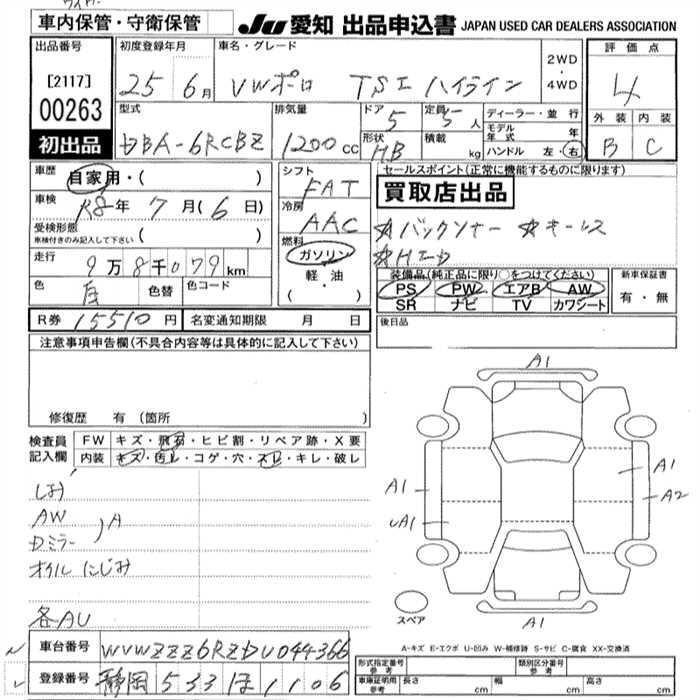 車内保管・守衛保管
JU 愛知 出品申込書 JAPAN USED CAR DEALERS ASSOCIATION
出品番号
[2117]
00263
初出品
初度登録年月
25 6月
車名・グレード
VWポロ TSI ハイライン
2WD
・
4WD
評価点
4
外装 内装
B C
型式
DBA-6RCBZ
排気量
1200cc
ドア
5
形状
HB
定員
5人
積載
kg
ディーラー・並行
モデル年式 年
ハンドル 左・右
車歴
自家用・( )
車検
R8年 7月(6日)
受検形態
車検付きのみ記入して下さい
( )
走行
9万8千079km
色
白
色替
色コード
シフト
FAT
冷房
AAC
燃料
ガソリン
軽・油
( ・ )
セールスポイント(正常に機能するものに限ります)
買取店出品
☆バックソナー ☆キーレス
☆HID
装備品(純正品に限り○をつけてください)
PS PW エアB AW
SR ナビ TV カワシート
新車保証書
有・無
R券 15510円
名変通知期限 月 日
後日品
注意事項申告欄(不具合内容等は具体的に記入して下さい)
修復歴 有(箇所 )
検査員
記入欄
FW キズ・飛石・ヒビ割・リペア跡・X要
内装 キズ・汚レ・コゲ・穴・スレ・キレ・破レ
AW
Dミラー
A
オイルにじみ
各AU
A1
A1
A1
A2
UA1
A1
スペア
A-キズ E-エクボ U-凹み W-補修跡 S-サビ C-腐食 XX-交換済
車台番号 WVWZZZ6RZDU044366
登録番号 静岡 533 ほ 1106
形式指定番号
参考
類別区分番号
参考
車庫証明用
参考
長さ cm 幅 cm 高さ cm